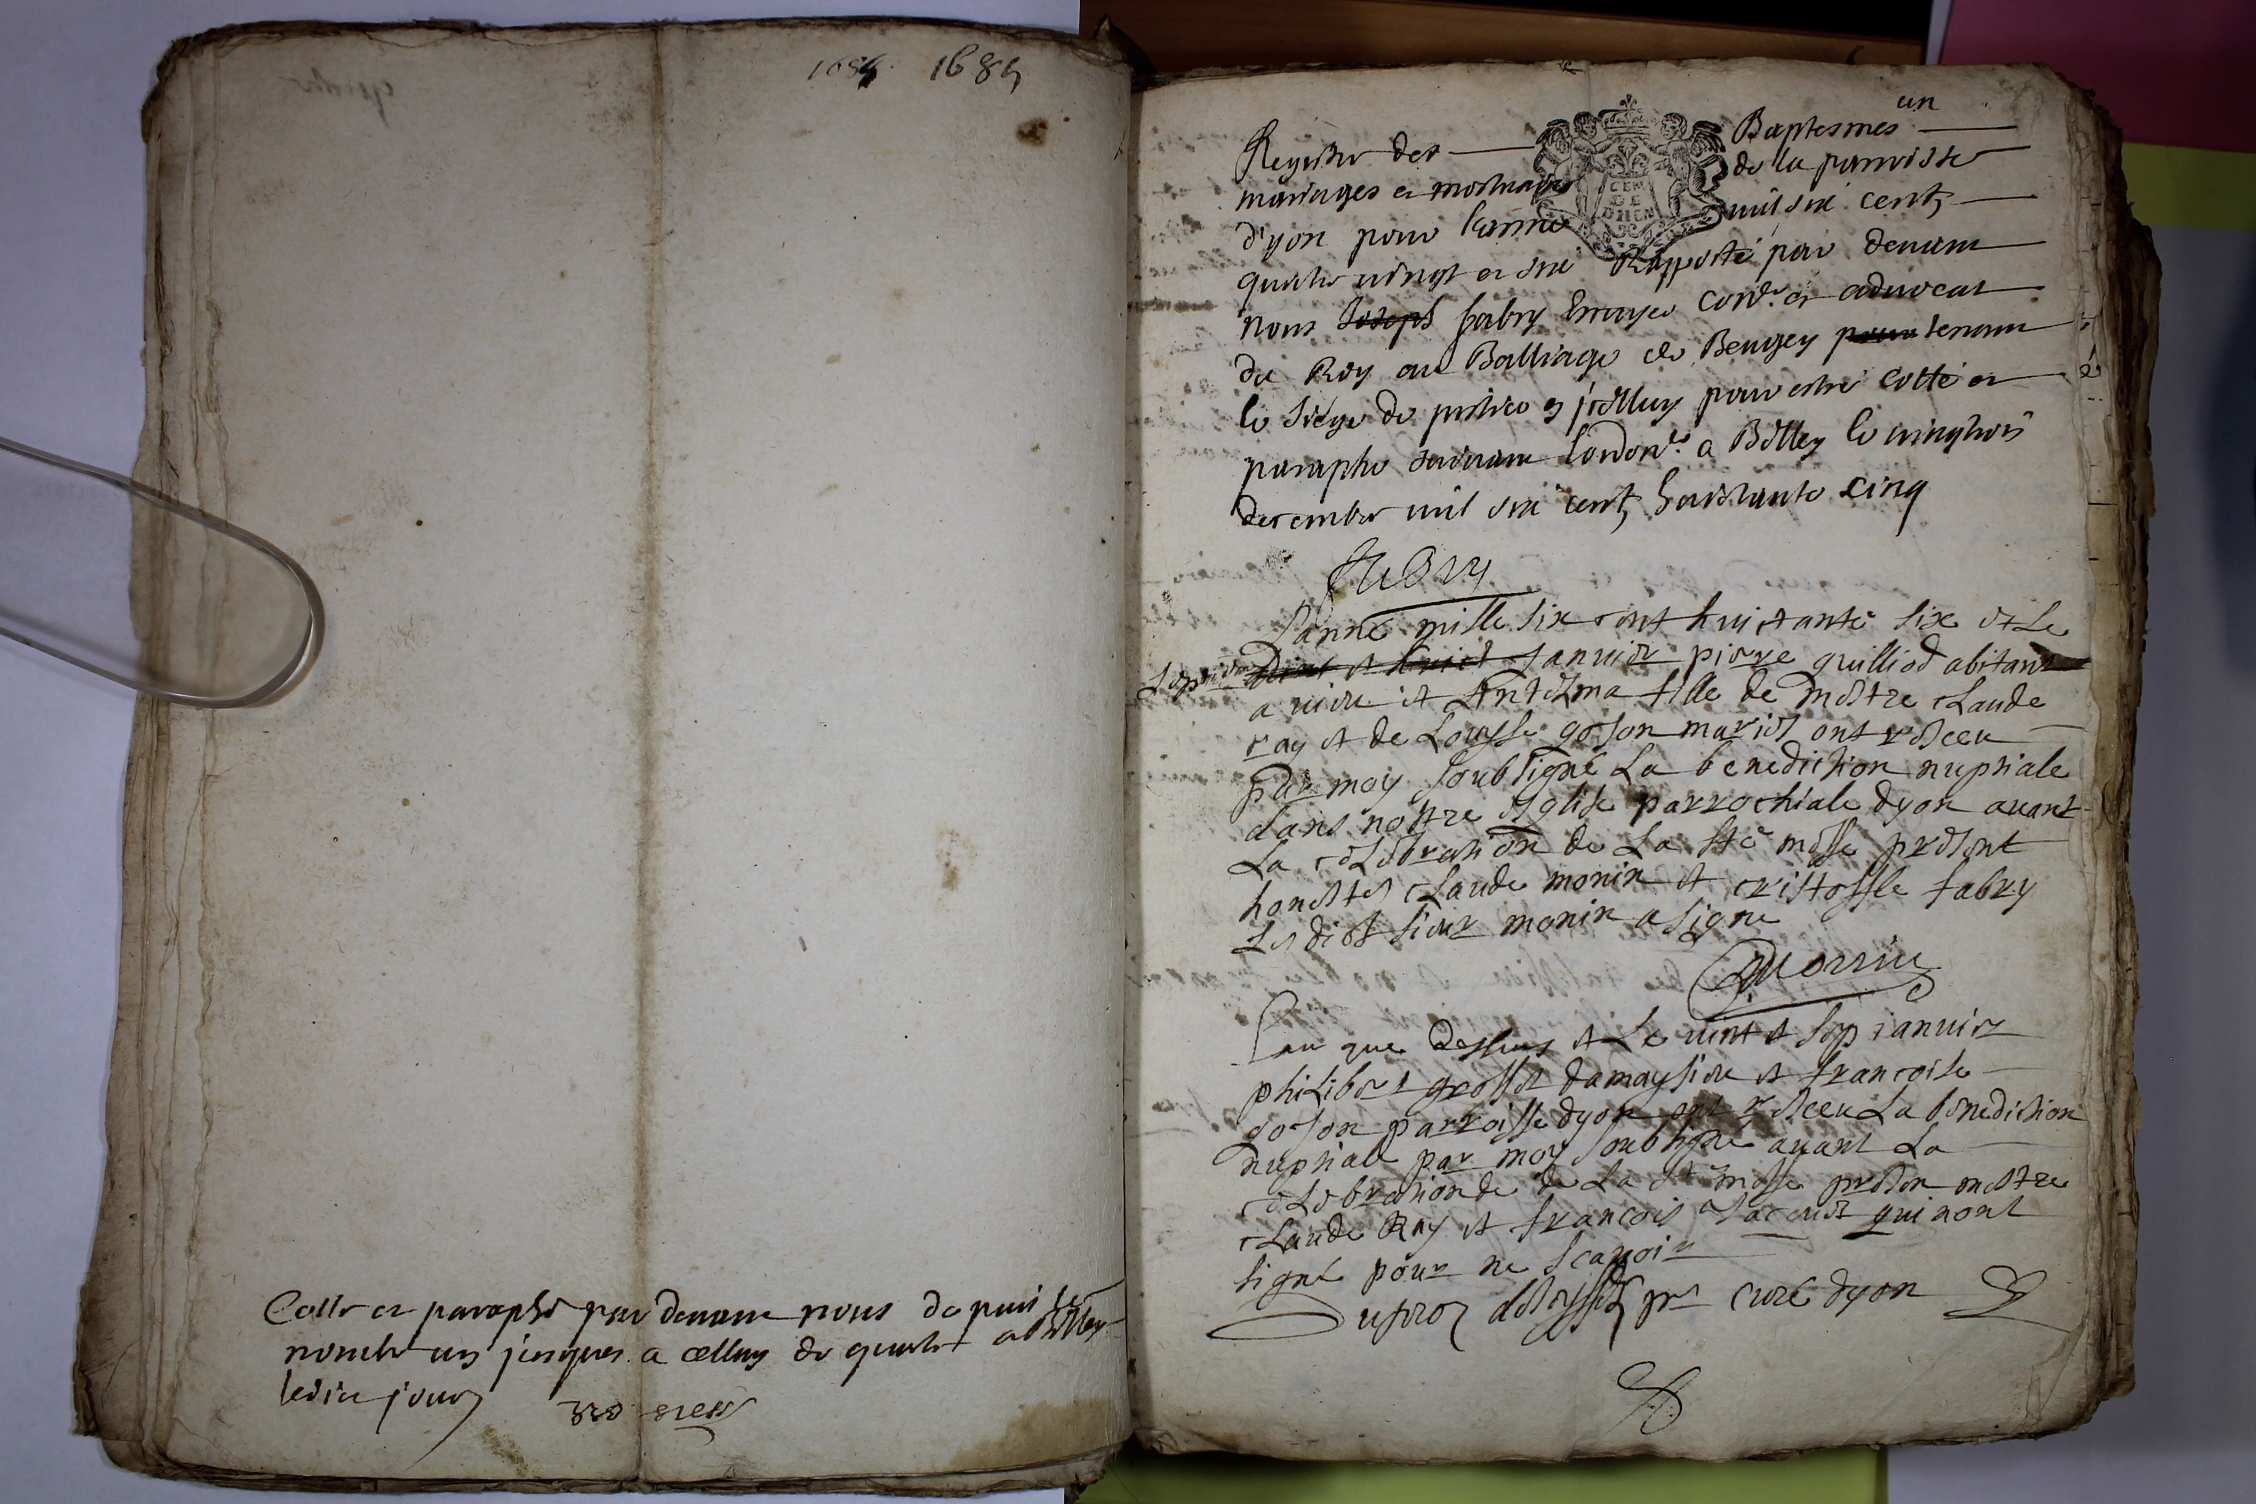 1685 1685
Cotté et paraphé par devant nous depuis le
nombre un jusques a celluy de quatre a Belley
ledict jour
un
Registre des Baptesmes
mariages et mortuaires de la parroisse
d'yon pour l'année mil six centz
quatre vingt et six Rapporté par devant
nous Joseph fabry Escuyer Cons.r et advocat
du Roy au Balliage de Beugey pour tenant
le siege de justice en jcelluy pour estre cotté et
paraphé suivant l'ordon.ce a Belley le vingtrois
decembre mil six centz huictante cinq
Fabry
L'anné mille six cent huictante six et Le
Janvier pierre guilliod abitant
a vieu et Antelma fille de mestre Claude
ray et de Louysse goion mariés ont resceu
par moy soubsigné La benediction nuptiale
dans nostre esglise parrochiale dyon avant
La celebration de La ste messe present
honestes Claude monin et cristoffle fabry
Le dict sieur monin a signe
Monin
Lan que dessus et Le vint et sep ianvier
philibert grosset damaysieu et francoise
goion parroisse dyon ont resceu La benediction
nuptiale par moy soubsigné avant La
celebration de de La ste messe presen mestre
Claude Ray et francois qui nont
signé pour ne scavoir
curé dyon